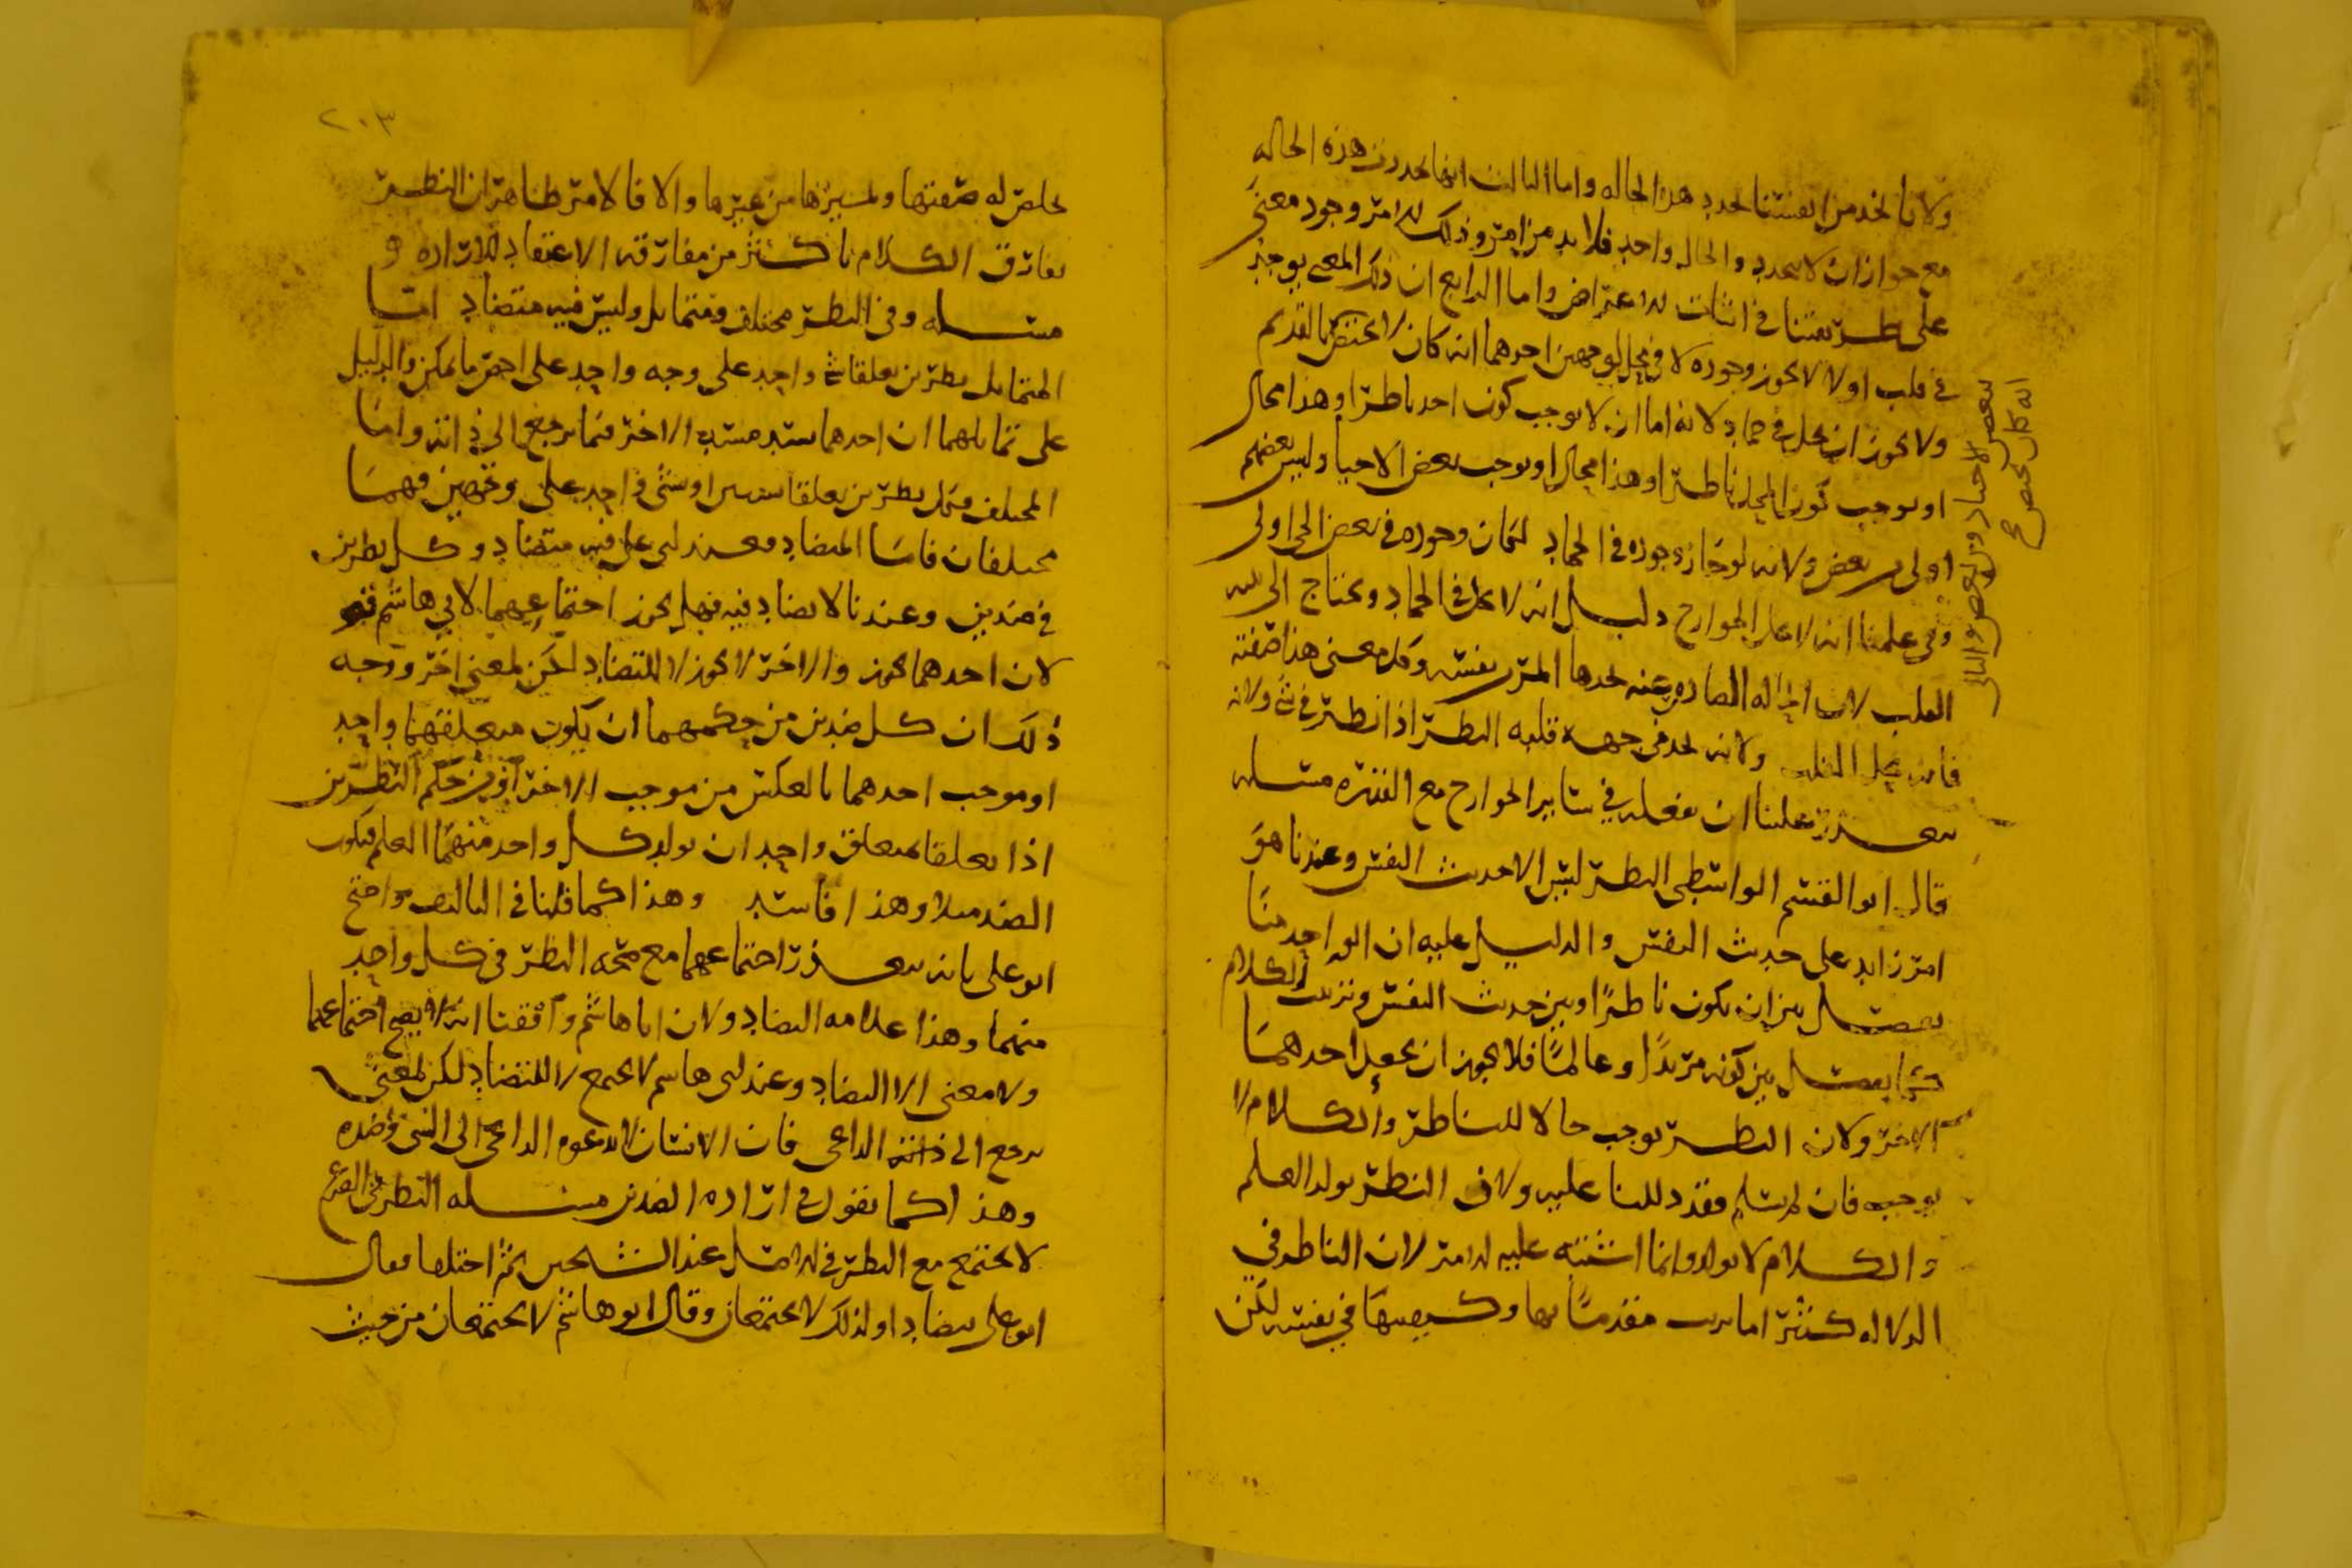 ولانا نجد من انفسنا تجدد هذه الحاله واما الثالث انها تجددت هذه الحاله
مع جواز ان لا تتجدد والحال واحد فلا بد من امر وذلك الامر وجود معنى
على طريقتنا في اثبات الاعراض واما الرابع ان ذلك المعنى يوجد
في قلب اولا لا يجوز وجوده لا في محل لوجهين احدهما انه كان لا يختص بالقديم
ولا يجوز ان يحل في جماد لانه اما ان لا يوجب كون احد ناظرا وهذا محال
او يوجب كون المحل ناظرا وهذا محال او يوجب لبعض الاحيا وليس بعضهم
اولى من بعض ولانه لو جاز وجوده في الجماد لكان وجوده في بعض الحي اولى
وفي علمنا انه لا يحل الجوارح دليل انه لا يحل في الجماد ويحتاج الى بنيه
القلب لان الحاله الصادره عنه يجدها المر من نفسه وكل معنى هذا صفته
فانه يحل القلب ولانه يجد من جهه قلبه النظر اذا نظر في شي ولانه
يتعذر علينا ان نفعله في ساير الجوارح مع القدره مسله
قال ابو القسم الواسطي النظر ليس الا حديث النفس وعندنا هو
امر زايد على حديث النفس والدليل عليه ان الواحد منا
يفصل بين ان يكون ناظرًا وبين حديث النفس وترتيب الكلام
كما يفصل بين كونه مريدًا وعالمًا فلا يجوز ان يجعل احدهما
الاخر ولان النظر يوجب حالا للناظر والكلام لا
يوجبه فان لم يسلم فقد دللنا عليه ولان النظر يولد العلم
والكلام لا يولد وانما اشتبه عليه الامر لان الناظر في
الدلاله كثيرا ما يرتب مقدماتها وكيفيتها في نفسه لكن
انه كان يختص
ببعض الاحياء دون بعض والثاني
٢٠٣
تخلص له صفتها وتمييزها من غيرها والا فالامر ظاهر ان النظر
يفارق الكلام باكثر من مفارقه الاعتقاد للاراده و
مسله وفي النظر مختلف ومتماثل وليس فيه متضاد اما
المتماثل نظرين تعلقا بشي واحد على وجه واحد على اخص ما يمكن والدليل
على تماثلهما ان احدهما يسد مسد الاخر فيما يرجع الى ذاته واما
المختلف فمثل نظرين تعلقا بشيين او بشي واحد على وجهين فهما
مختلفان فاما المتضاد فعند ابي علي فيه متضاد وكل نظرين
في ضدين وعندنا لا تضاد فيه فهل يجوز اجتماعهما لابي هاشم
لان احدهما يجوز والاخر لا يجوز لا للتضاد لكن لمعنى اخر ووجه
ذلك ان كل ضدين من حكمهما ان يكون متعلقهما واحد
او موجب احدهما بالعكس من موجب الاخر ومن حكم النظرين
اذا تعلقا بمتعلق واحد ان يولد كل واحد منهما العلم فيكون
الضد مثلا وهذا فاسد وهذا كما قلنا في التاليف واحتج
ابو علي بانه يتعذر اجتماعهما مع صحه النظر في كل واحد
منهما وهذا علامه التضاد ولان ابا هاشم وافقنا انه لا يصح اجتماعهما
ولا معنى الا التضاد وعند ابي هاشم لا يجتمع لا للتضاد لكن لمعنى
يرجع الى ذات الداعي فان الانسان لا يدعوه الداعي الى الشي وضده
وهذا كما نقول في اراده الضدين مسله النظر في الفرع
لا يجتمع مع النظر في الاصل عند الشيخين ثم اختلفا فقال
ابو علي يتضادا ولذلك لا يجتمعان وقال ابو هاشم لا يجتمعان من حيث